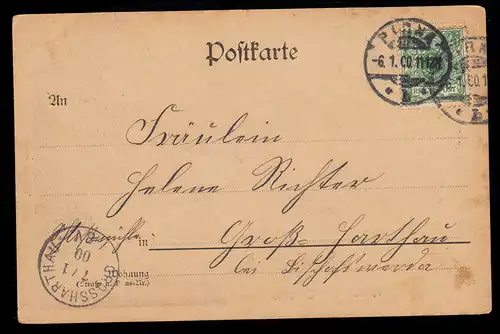 Postkarte
PIRNA
-6.1.00.11-12V
b
An
Fräulein
Helene Richter
Schloßmühle in
Groß-Harthau
bei Bischofswerda
GROSSHARTHAU
7/1
00
Wohnung
(Straße u.